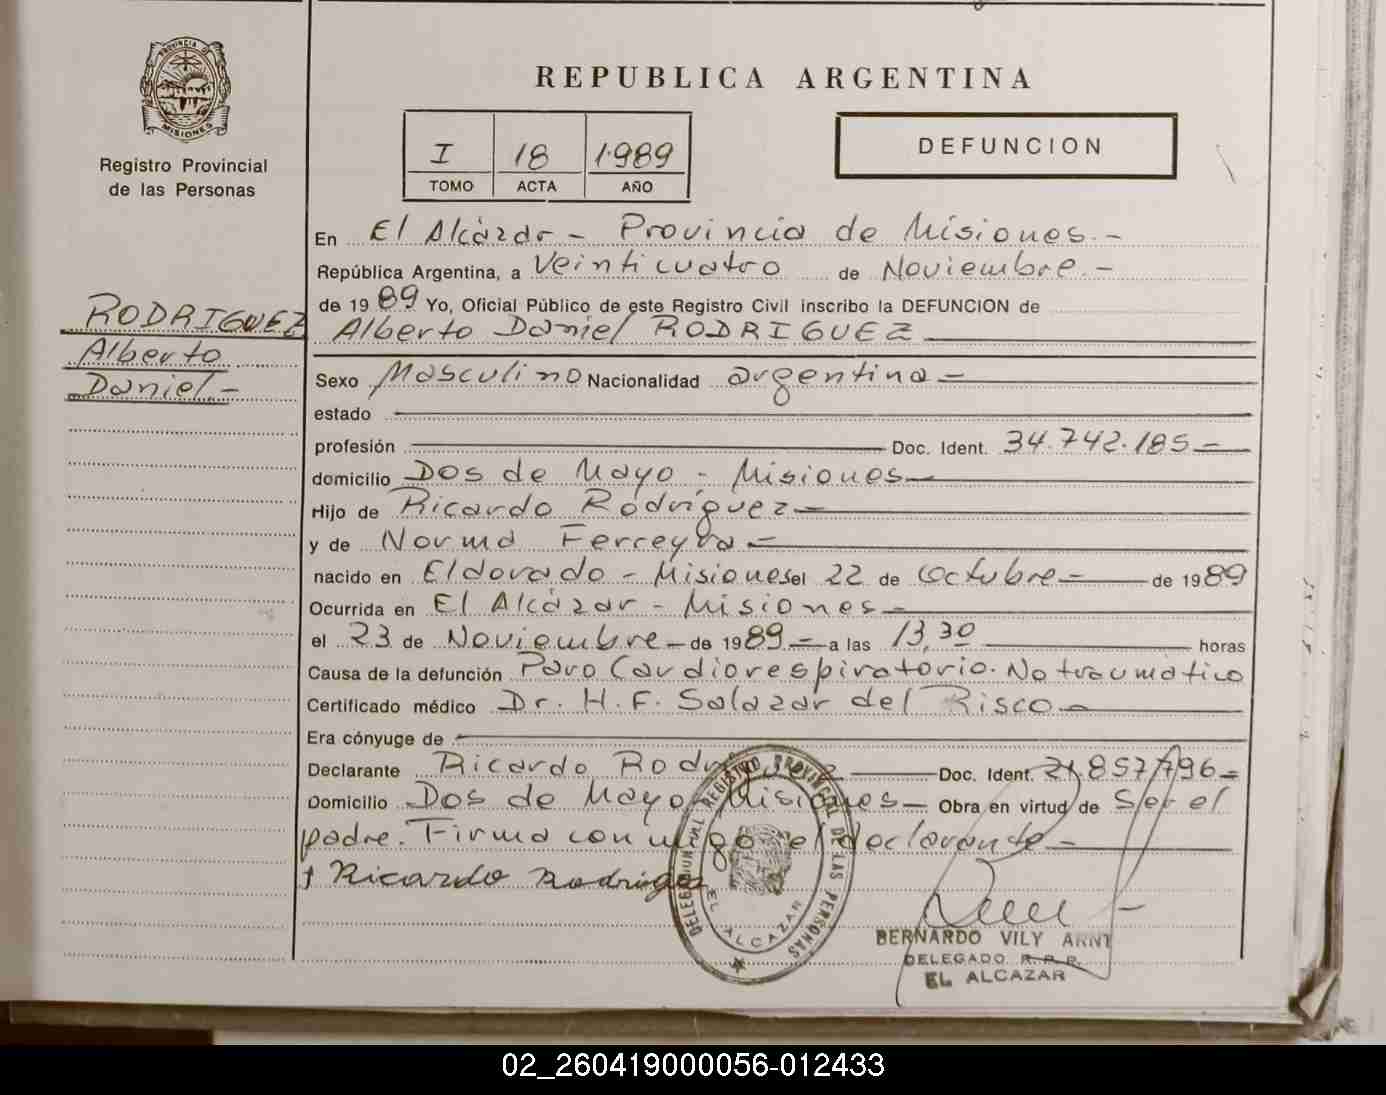 PROVINCIA DE
MISIONES
Registro Provincial
de las Personas
REPUBLICA ARGENTINA
I 18 1989
TOMO ACTA AÑO
DEFUNCION
RODRIGUEZ
Alberto
Daniel -
En El Alcázar - Provincia de Misiones. -
República Argentina, a Veinticuatro de Noviembre. -
de 1989 Yo, Oficial Público de este Registro Civil inscribo la DEFUNCION de
Alberto Daniel RODRIGUEZ
Sexo Masculino Nacionalidad argentina -
estado
profesión Doc. Ident. 34.742.185 -
domicilio Dos de Mayo - Misiones
Hijo de Ricardo Rodríguez -
y de Norma Ferreyra -
nacido en Eldorado - Misiones el 22 de Octubre - de 1989
Ocurrida en El Alcázar - Misiones -
el 23 de Noviembre - de 1989 - a las 13,30 horas
Causa de la defunción Paro Cardiorespiratorio. No traumatico
Certificado médico Dr. H. F. Salazar del Risco -
Era cónyuge de
Declarante Ricardo Rodríguez Doc. Ident. 21.857.796 -
Domicilio Dos de Mayo - Misiones - Obra en virtud de Ser el
padre. Firma conmigo el declarante -
Ricardo Rodrigez
DELEGACION REGISTRO PROVINCIAL DE LAS PERSONAS
EL ALCAZAR
BERNARDO VILY ARNT
DELEGADO R. P. P.
EL ALCAZAR
02_260419000056-012433